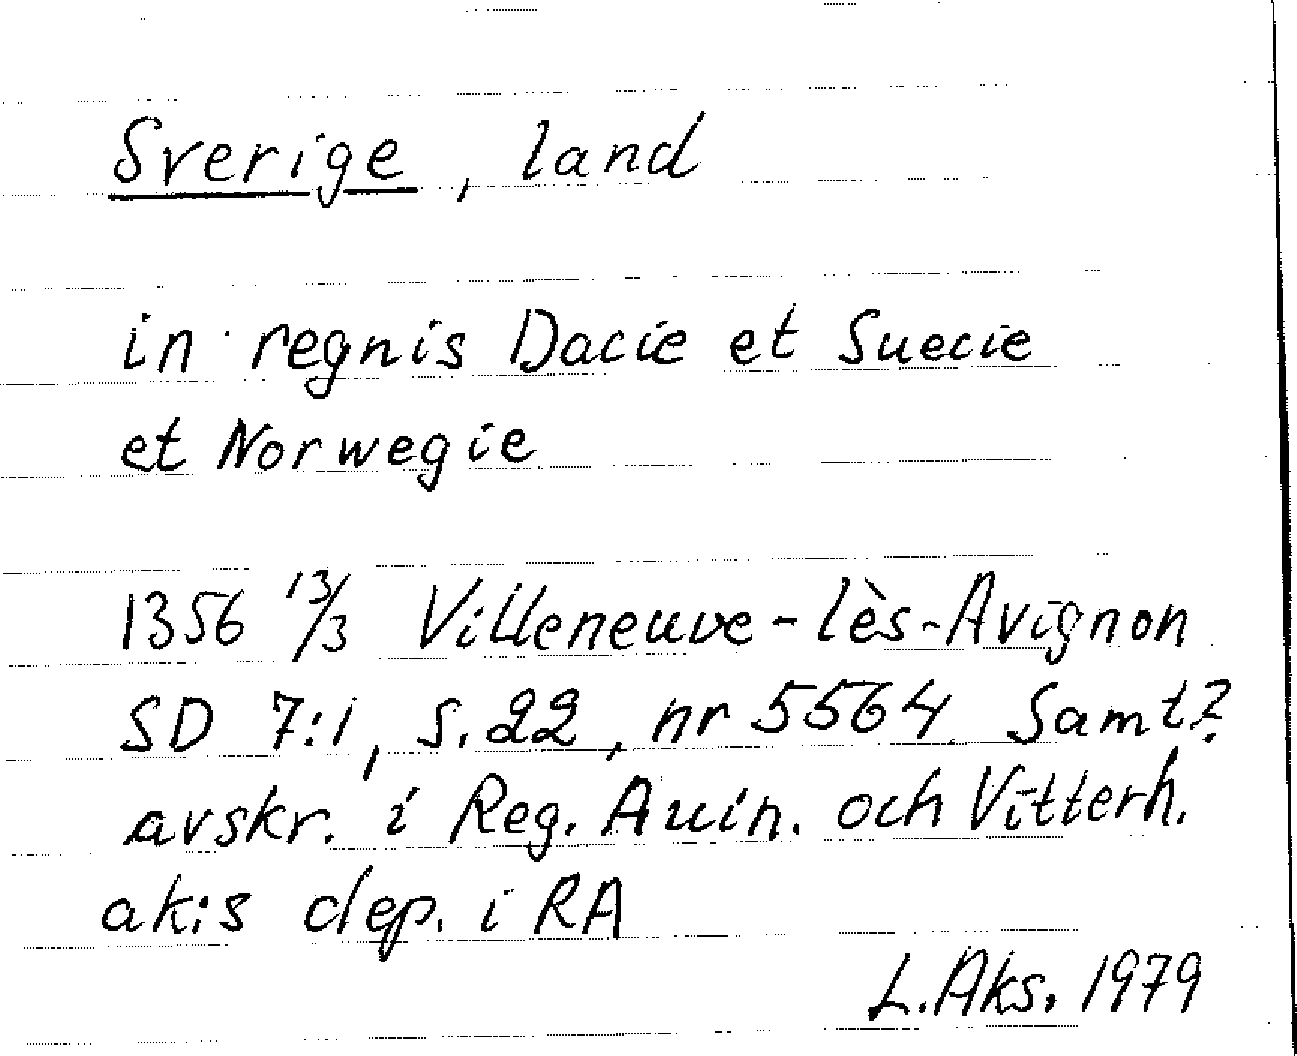 Sverige, land
in regnis Dacie et Suecie
et Norwegie
1356 13/3 Villeneuve-lès-Avignon
SD 7:1, s. 22, nr 5564 Samt?
avskr. i Reg. Auin. och Vitterh.
ak:s dep. i RA
L. Aks. 1979